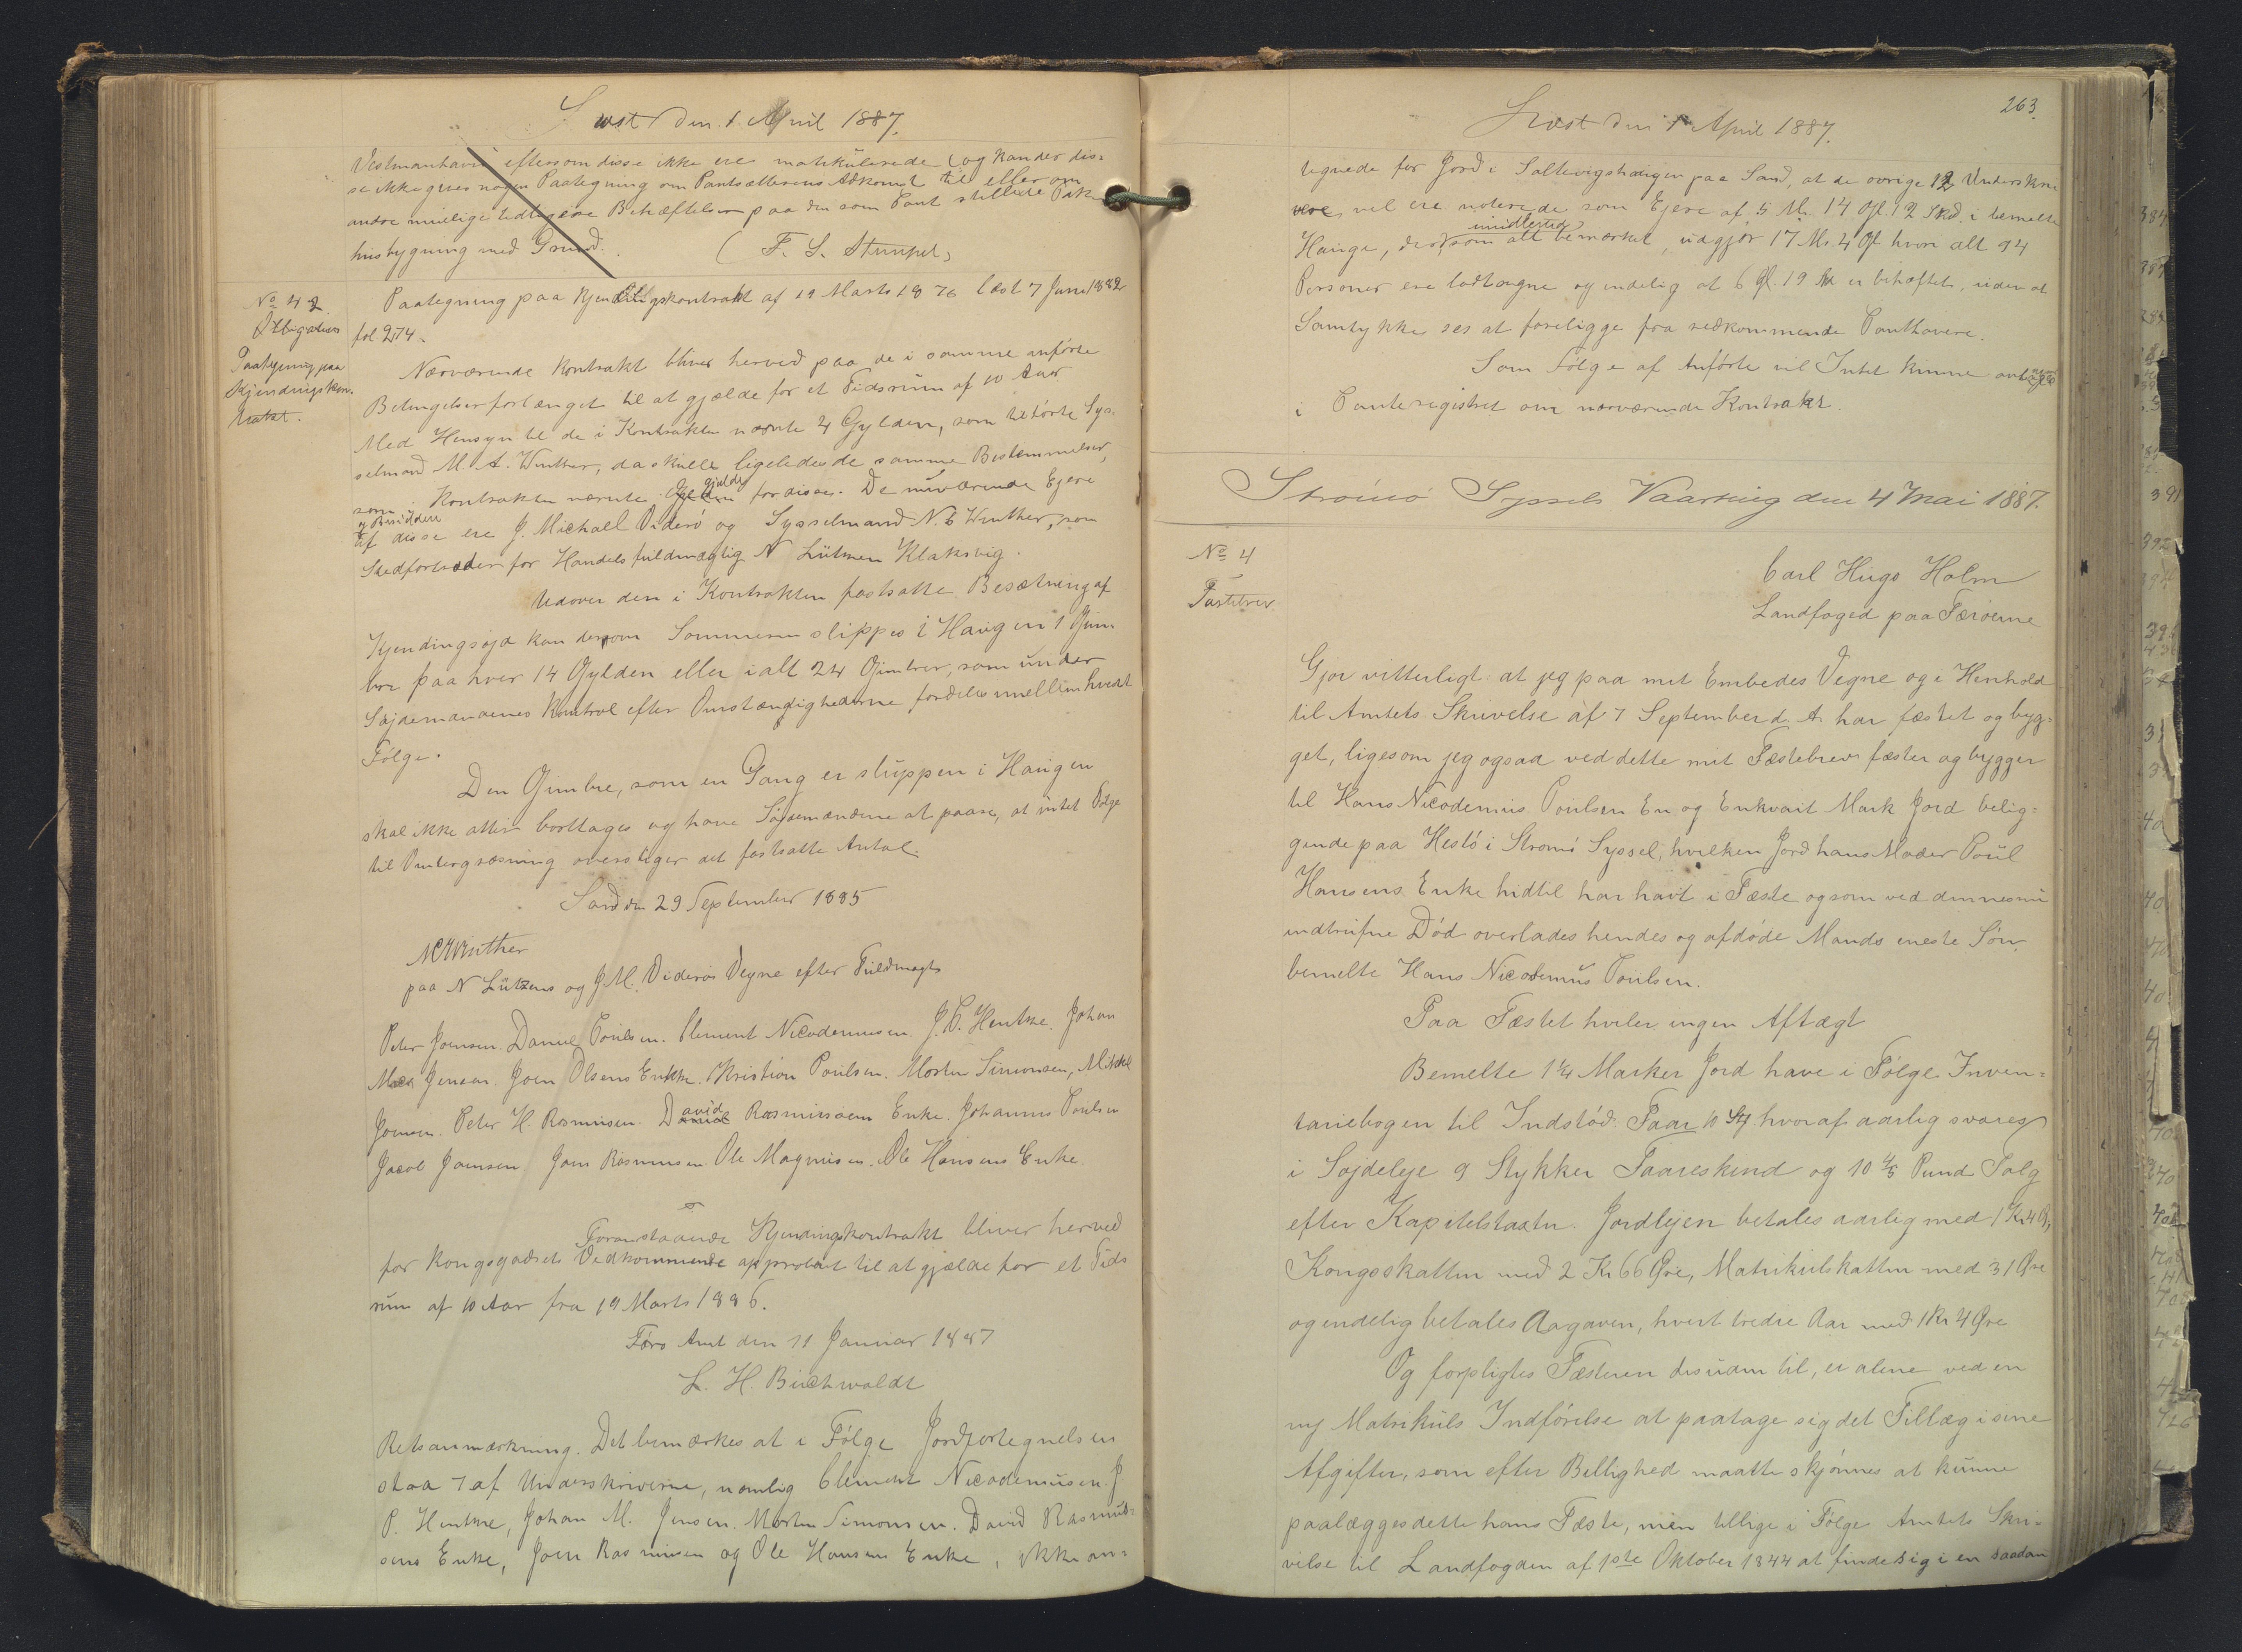 Læst den 1 April 1887.
Vestmanhavn eftersom disse ikke ere matrikulerede (og kan der dis=
se ikke gives nogen Paategning om Pantsætterens Adkomst til eller om
andre mulige tidligere Behæftelser paa den som Pant stillede Pak
husbygning med Grund.
( F. S. Stumpel,
No 42
Obligation
Paategning paa
Kjendingskon-
trakt.
Paategning paa Kjendingskontrakt af 19 Marts 1876 læst 7 Juni 1882
fol 274.
Nærværende Kontrakt bliver herved paa de i samme anførte
Betingelser forlænget til at gjælde for et Tidsrum af 10 Aar
Med Hensyn til de i Kontrakten nævnte 4 Gylden, som tilførte Sys-
selmand M. A. Winther, da skulle ligeledes de samme Bestemmelser,
som i Kontrakten nævnte gjælde for disse. De nuværende Ejere
og Besiddere
af disse ere J. Michael Viderö og Sysselmand N. C Winther, som
Stedfortræder for Handelsfuldmægtig N Lützen Klaksvig.
Udover den i Kontrakten fastsatte Besætning af
Kjendingsøjd kan desom Sommeren slippes i Haugen 1 Gim
bre paa hver 14 Gylden eller ialt 24 Gimbrer, som under
Søjdemændenes Kontrol efter Omstændighederne fordeles mellem hvert
Følge.
Den Gimbre, som en Gang er sluppen i Haugen
skal ikke atter borttages og have Søjdemændene at paase, at intet Følge
til Vintergræsning overstiger det fastsatte Antal.
Sand den 29 September 1885
NCWinther
paa N Lützens og J M. Viderös Vegne efter Fuldmagt
Peter Joensen. Daniel Poulsen. Clement Nicodemusen. J. P. Hentze. Johan
M Jensen. Joen Olsens Enke. Kristian Poulsen. Morten Simonsen, Mikkel
Joensen. Peter H. Rasmusen. David Rasmussens Enke. Johannes Poulsen
Jacob Joensen Joen Rasmusen Ole Magnusen. Ole Hansens Enke
Foranstaaende Kjendingskontrakt bliver herved
for Kongsgodsets Vedkommende approbert til at gjælde for et Tids
rum af 10 Aar fra 19 Marts 1886.
Færø Amt den 11 Januar 1887
L. H. Buchwaldt
Retsanmærkning. Det bemærkes at i Følge Jordfortegnelsen
staa 7 af Underskriverne, nemlig Clement Nicodemusen. J
P. Hentze, Johan M. Jensen. Morten Simonsen. David Rasmus=
sens Enke, Joen Rasmusen og Ole Hansens Enke, ikke an=
263.
Læst den 1 April 1887.
tegnede for Jord i Saltevigshaugen paa Sand, at de øvrige 12 Underskri
vere vel ere noterede som Ejere af 5 M. 14 Gl. 12 Skd. i bemelte
Hauge, der imidlertid som alt bemærket, udgjør 17 M. 4 Gl hvori alt 94
Personer ere lodtagne og endelig at 6 Gl. 19 Sk er behæftet, uden at
Samtykke ses at foreligge fra vedkommende Panthavere.
Som Følge af Anførte vil Intet kunne antegnes
i Panteregistret om nærværende Kontrakt.
Strömö Syssels Vaarting den 4 Mai 1887.
No 4
Fæstebrev.
Carl Hugo Holm
Landfoged paa Færøerne
Gjør vitterligt: at jeg paa mit Embedes Vegne og i Henhold
til Amtets Skrivelse af 7 September d. A. har fæstet og byg=
get, ligesom jeg ogsaa ved dette mit Fæstebrev fæster og bygger
til Hans Nicodemus Poulsen En og Enkvart Mark Jord belig=
gende paa Hestö i Strömö Syssel, hvilken Jord hans Moder Poul
Hansens Enke hidtil har havt i Fæste og som ved dennes nu
indtrufne Död overlades hendes og afdöde Mands eneste Sön,
bemelte Hans Nicodemus Poulsen.
Paa Fæstet hviler ingen Aftægt
Bemelte 1¼ Marker Jord have i Følge Inven=
tariebogen til Indstöd: Faar 10 St hvoraf aarlig svares
i Søjdeleje 9 Stykker Faareskind og 10 4/5 Pund Talg
efter Kapitelstaxten. Jordlejen betales aarlig med 1 Kr 4 Ø,
Kongsskatten med 2 Kr 66 Øre, Matrikulskatten med 31 Øre
og endelig betales Aagaven, hvert tredie Aar med 1 Kr 4 Øre
Og forpligtes Fæsteren desuden til, ei alene ved en
ny Matrikuls Indförelse at paatage sig det Tillæg i sine
Afgifter, som efter Billighed maatte skjönnes at kunne
paalægges dette hans Fæste, men tillige i Følge Amtets Skri=
velse til Landfogden af 1ste Oktober 1844 at finde sig i en saadan